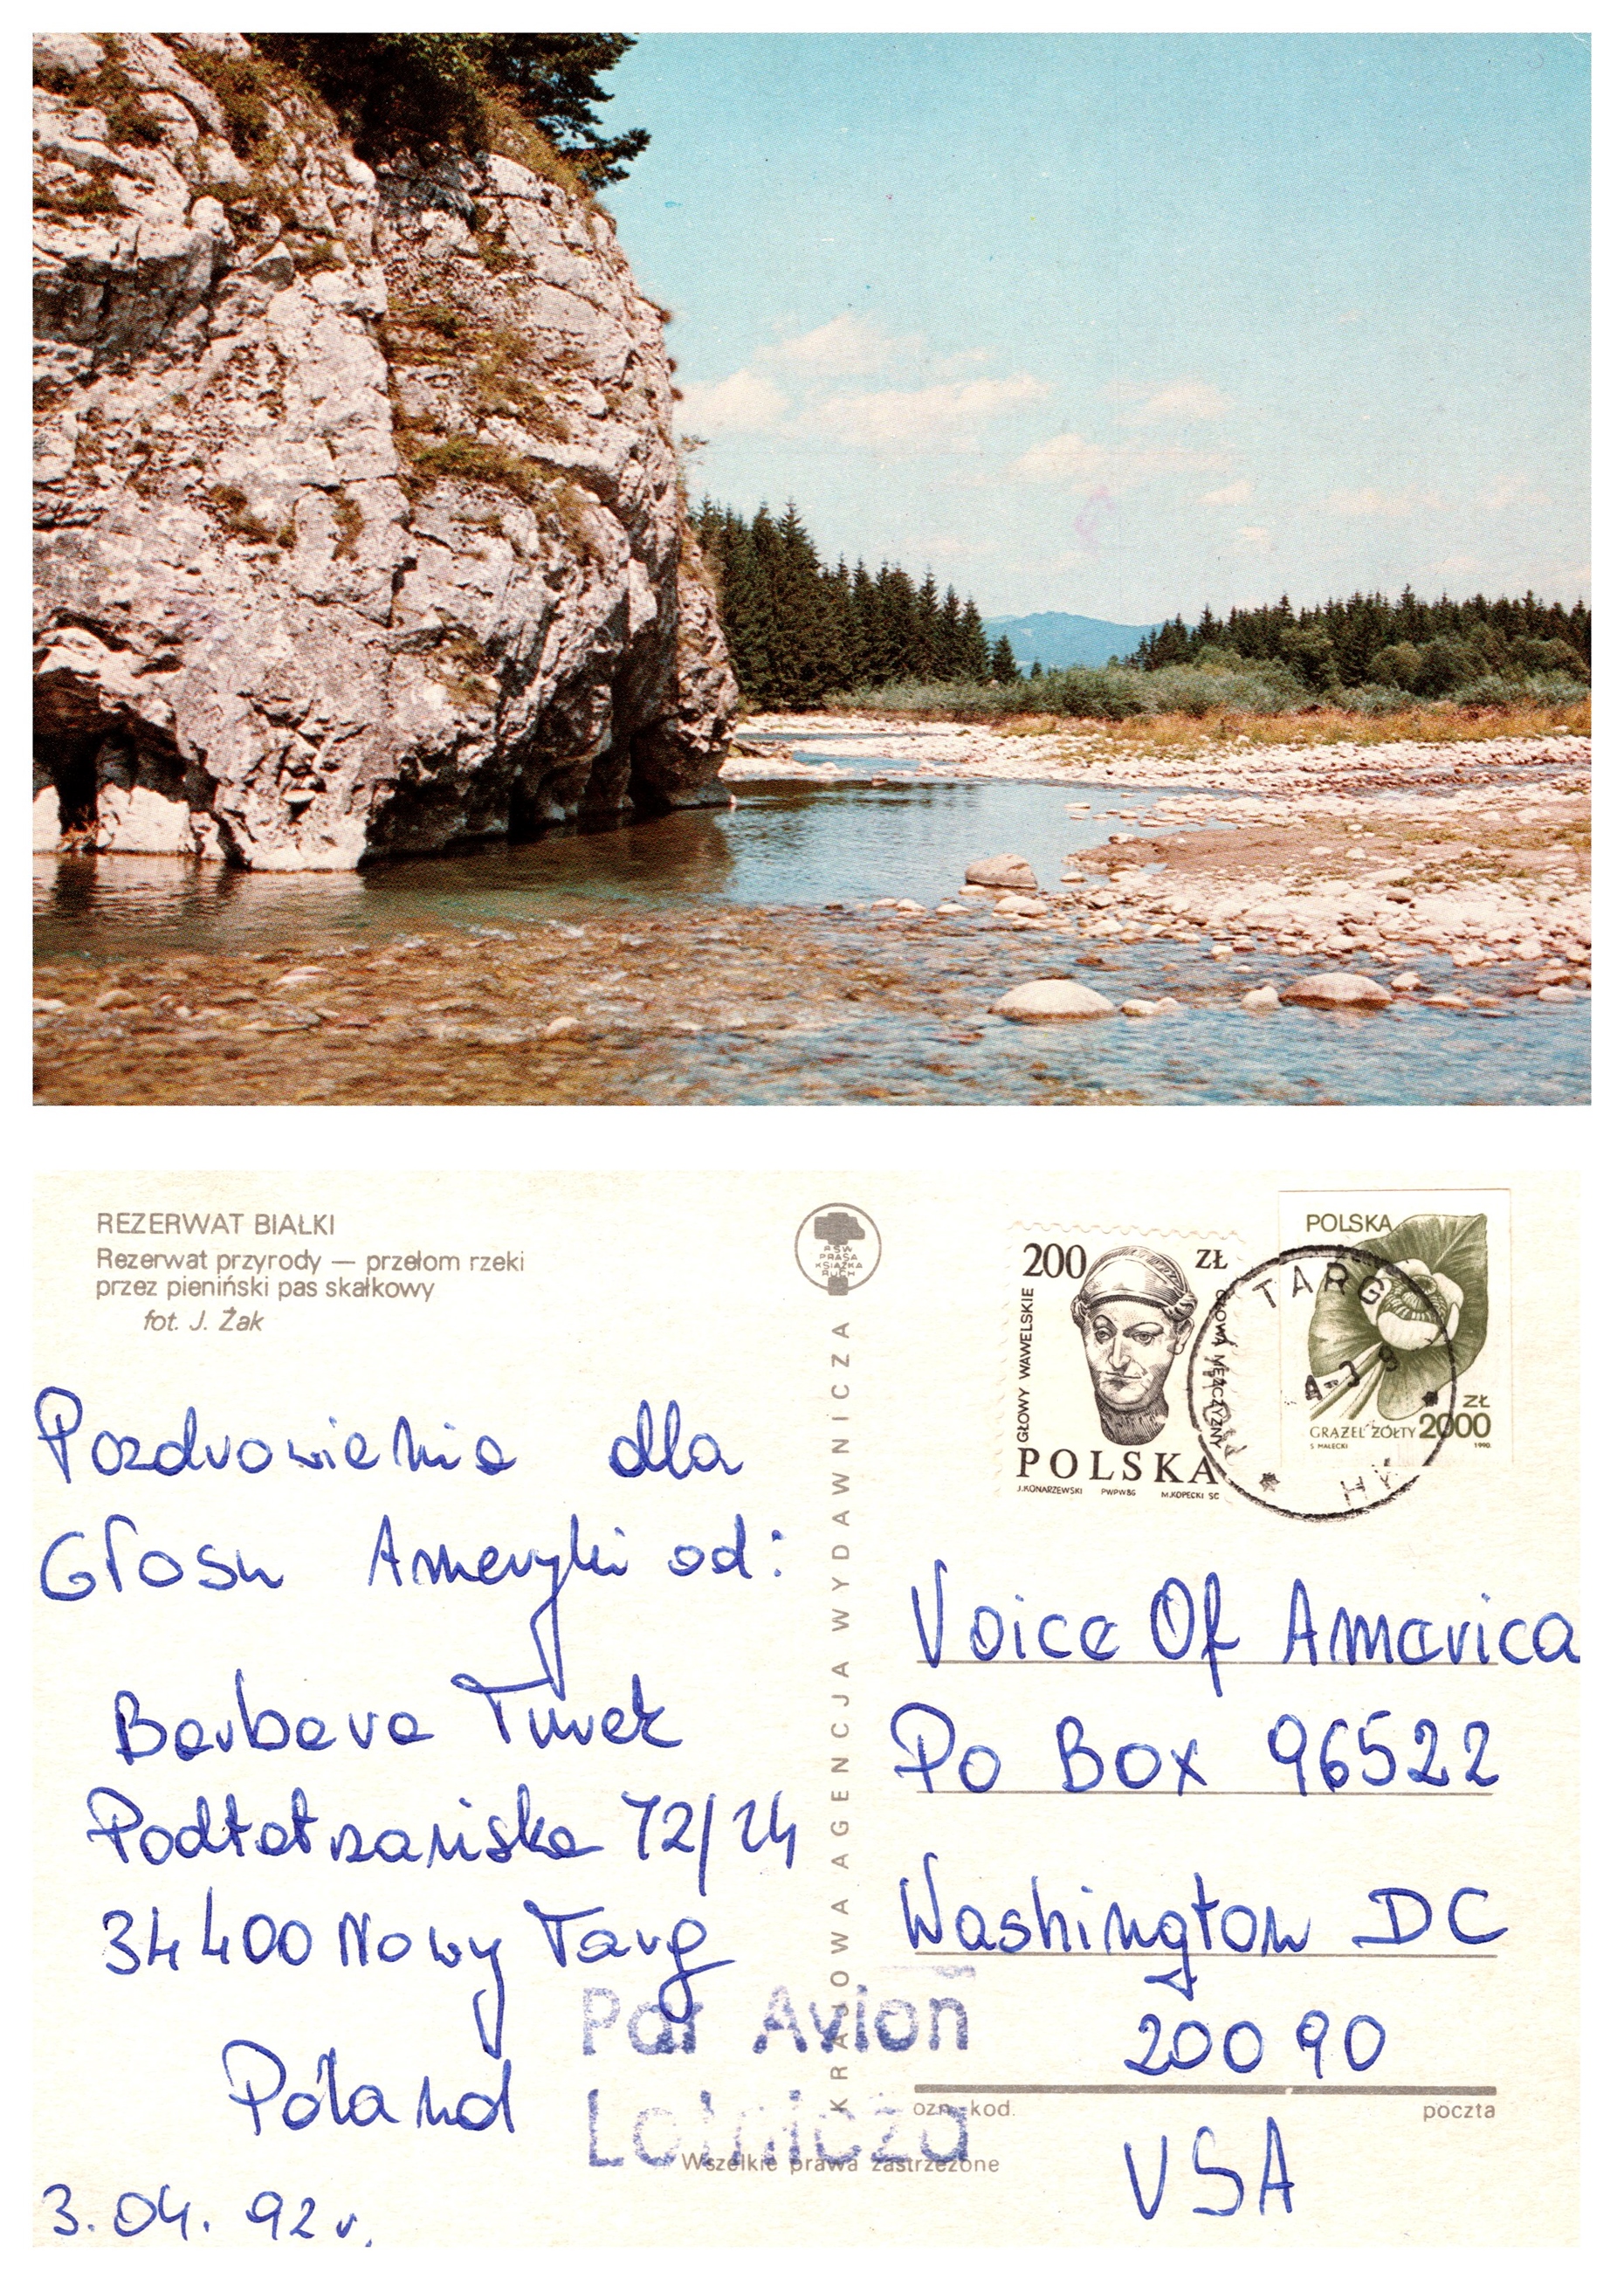 REZERWAT BIAŁKI
Rezerwat przyrody — przełom rzeki
przez pieniński pas skałkowy
fot. J. Żak
Pozdrowienia dla
Głosu Ameryki od:
Barbara Turek
Podtatrzańska 72/24
34400 Nowy Targ
Poland
3.04.92r.
RSW
PRASA
KSIĄŻKA
RUCH
KRAJOWA AGENCJA WYDAWNICZA
200 ZŁ
GŁOWY WAWELSKIE
GŁOWA MĘŻCZYZNY
POLSKA
J.KONARZEWSKI PWPW86 M.KOPECKI SC
POLSKA
ZŁ
GRĄŻEL ŻÓŁTY 2000
S MAŁECKI 1990
TARG
Voice Of America
Po Box 96522
Washington DC
20090
USA
Par Avion
Lotnicza
ozn. kod. poczta
Wszelkie prawa zastrzeżone